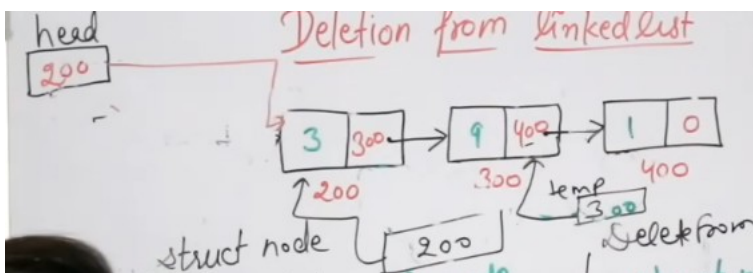 head
Deletion from linkedlist
200
3 300 9 400 1 0
200 300 400
temp
300
struct node 200 Delete from